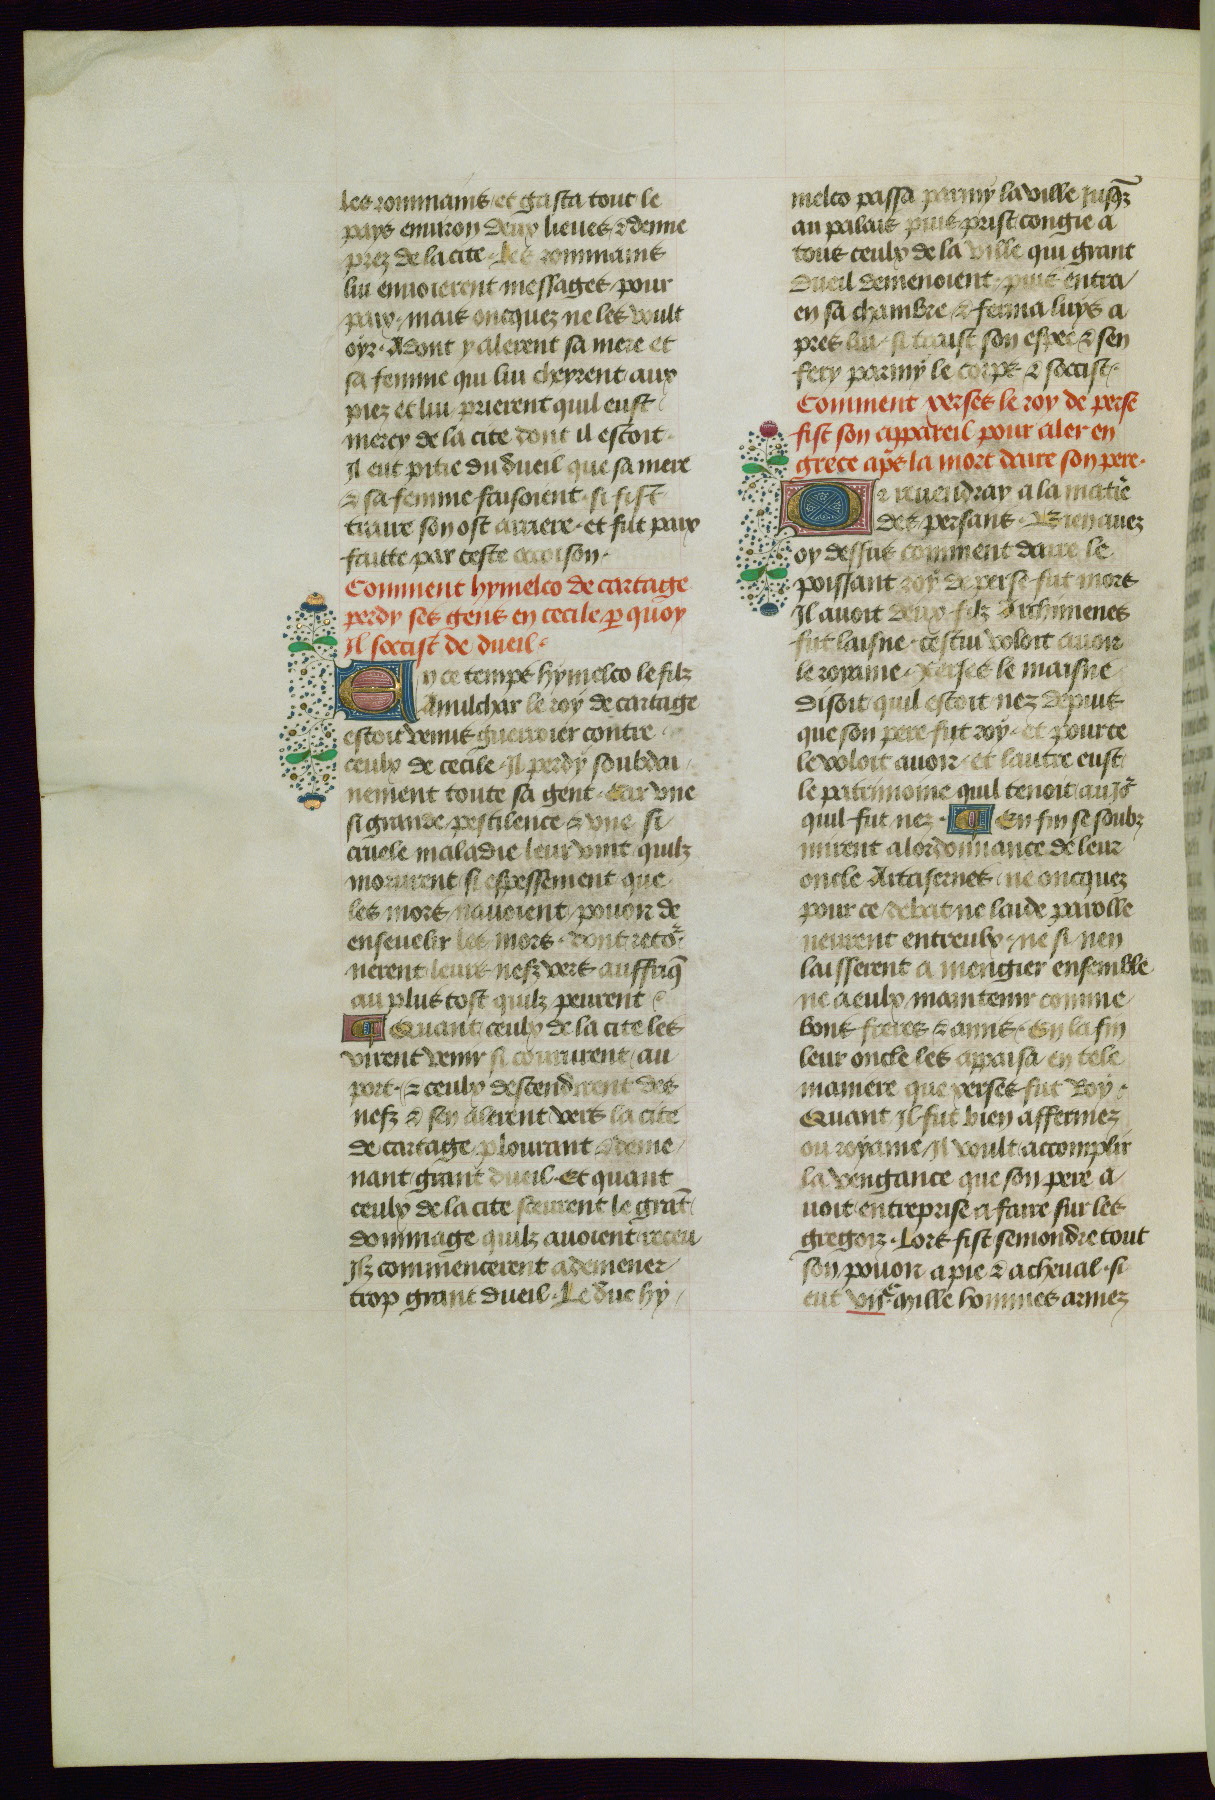 les rommains et gasta tout le
pays enuiron deux lieues & demie
prez de la cite. Les rommains
lui enuoierent messages pour
paix. mais oncquez ne les voult
oyr. Adont y alerent sa mere et
sa femme qui lui cheyrent aux
piez et lui prierent quil eust
mercy de la cite dont il estoit.
Il eut pitie du dueil que sa mere
& sa femme faisoient. si fist
traire son ost arriere. et fut paix
faitte par ceste occoison.
Comment hymelco de cartage
perdy ses gens en cecile p quoy
Il soccist de dueil.
En ce temps hymelco le filz
Amilchar le roy de cartage
estoit venus guerroier contre
ceulx de cecile. Il perdy soubdai
nement toute sa gent. Car vne
si grande pestilence & vne si
cruele maladie leur vint quilz
morurent si espessement que
les mors nauoient pouoir de
enseuelir les mors. dont reto^r
nerent leurs nefz vers auffriq
au plus tost quilz peurent
Quant ceulx de la cite les
virent venir si coururent au
port. & ceulx descendirent des
nefz & sen alerent vers la cite
de cartage plourant & deme
nant grant dueil. Et quant
ceulx de la cite sceurent le grat
dommage quilz auoient receu
Ilz commencerent a demener
trop grant dueil. Le duc hy
melco passa parmy la ville Jusqz
au palais puis prist congie a
tous ceulx de la ville qui grant
dueil demenoient. puis entra
en sa chambre & ferma luys a
pres lui. si traist son espee & sen
fery parmy le corps & soccist.
Comment xerses le roy de perse
fist son appareil pour aler en
grece apes la mort daire son pere.
Or reuendray a la matie
des persans. Bien auez
oy dessus comment daire le
poissant roy de perse fut mors
Il auoit deux filz Archimenes
fut laisne. cestui voloit auoir
le royaume. Xerses le maisne
disoit quil estoit nez depuis
que son pere fut roy. et pour ce
le voloit auoir. et lautre eust
le patrimoine quil tenoit au Jo^r
quil fut nez. En fin se soubz
mirent a lordonnance de leur
oncle Artafernes. ne oncquez
pour ce debat ne laide parolle
neurent entreulx. ne si nen
laisserent a mengier ensemble
ne a eulx maintenir comme
bons freres & amis. En la fin
leur oncle les appaisa en tele
maniere que xerses fut Roy.
Quant Il fut bien affermez
ou royame Il voult accomplir
la vengance que son pere a
uoit entreprise a faire sur les
gregois. Lors fist semondre tout
son pouoir a pie & a cheval. si
eut vii^c mille hommes armez